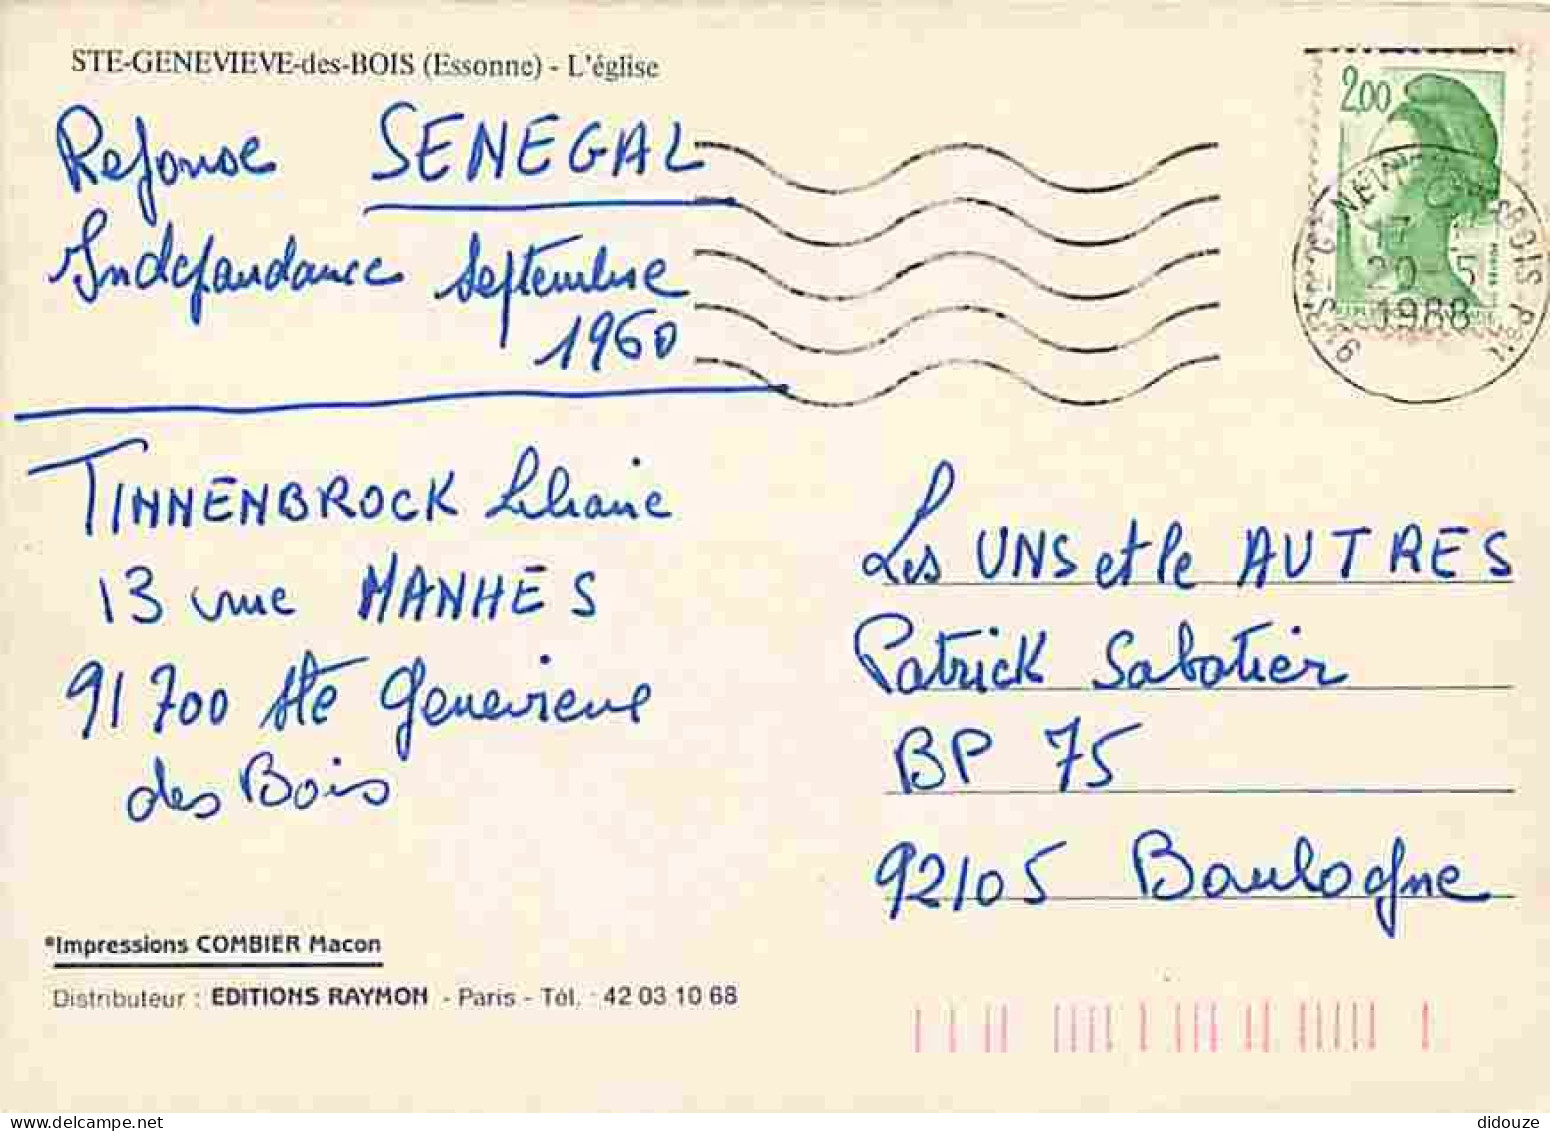 STE-GENEVIEVE-des-BOIS (Essonne) - L'église
Reponse SENEGAL
Indépandance septembre
1960
TINNENBROCK Liliane
13 rue MANHES
91700 Ste Genevieve
des Bois
*Impressions COMBIER Macon
Distributeur : EDITIONS RAYMON - Paris - Tél. : 42 03 10 68
2,00
20-5
1988
Les UNS et le AUTRES
Patrick Sabatier
BP 75
92105 Boulogne
didouze